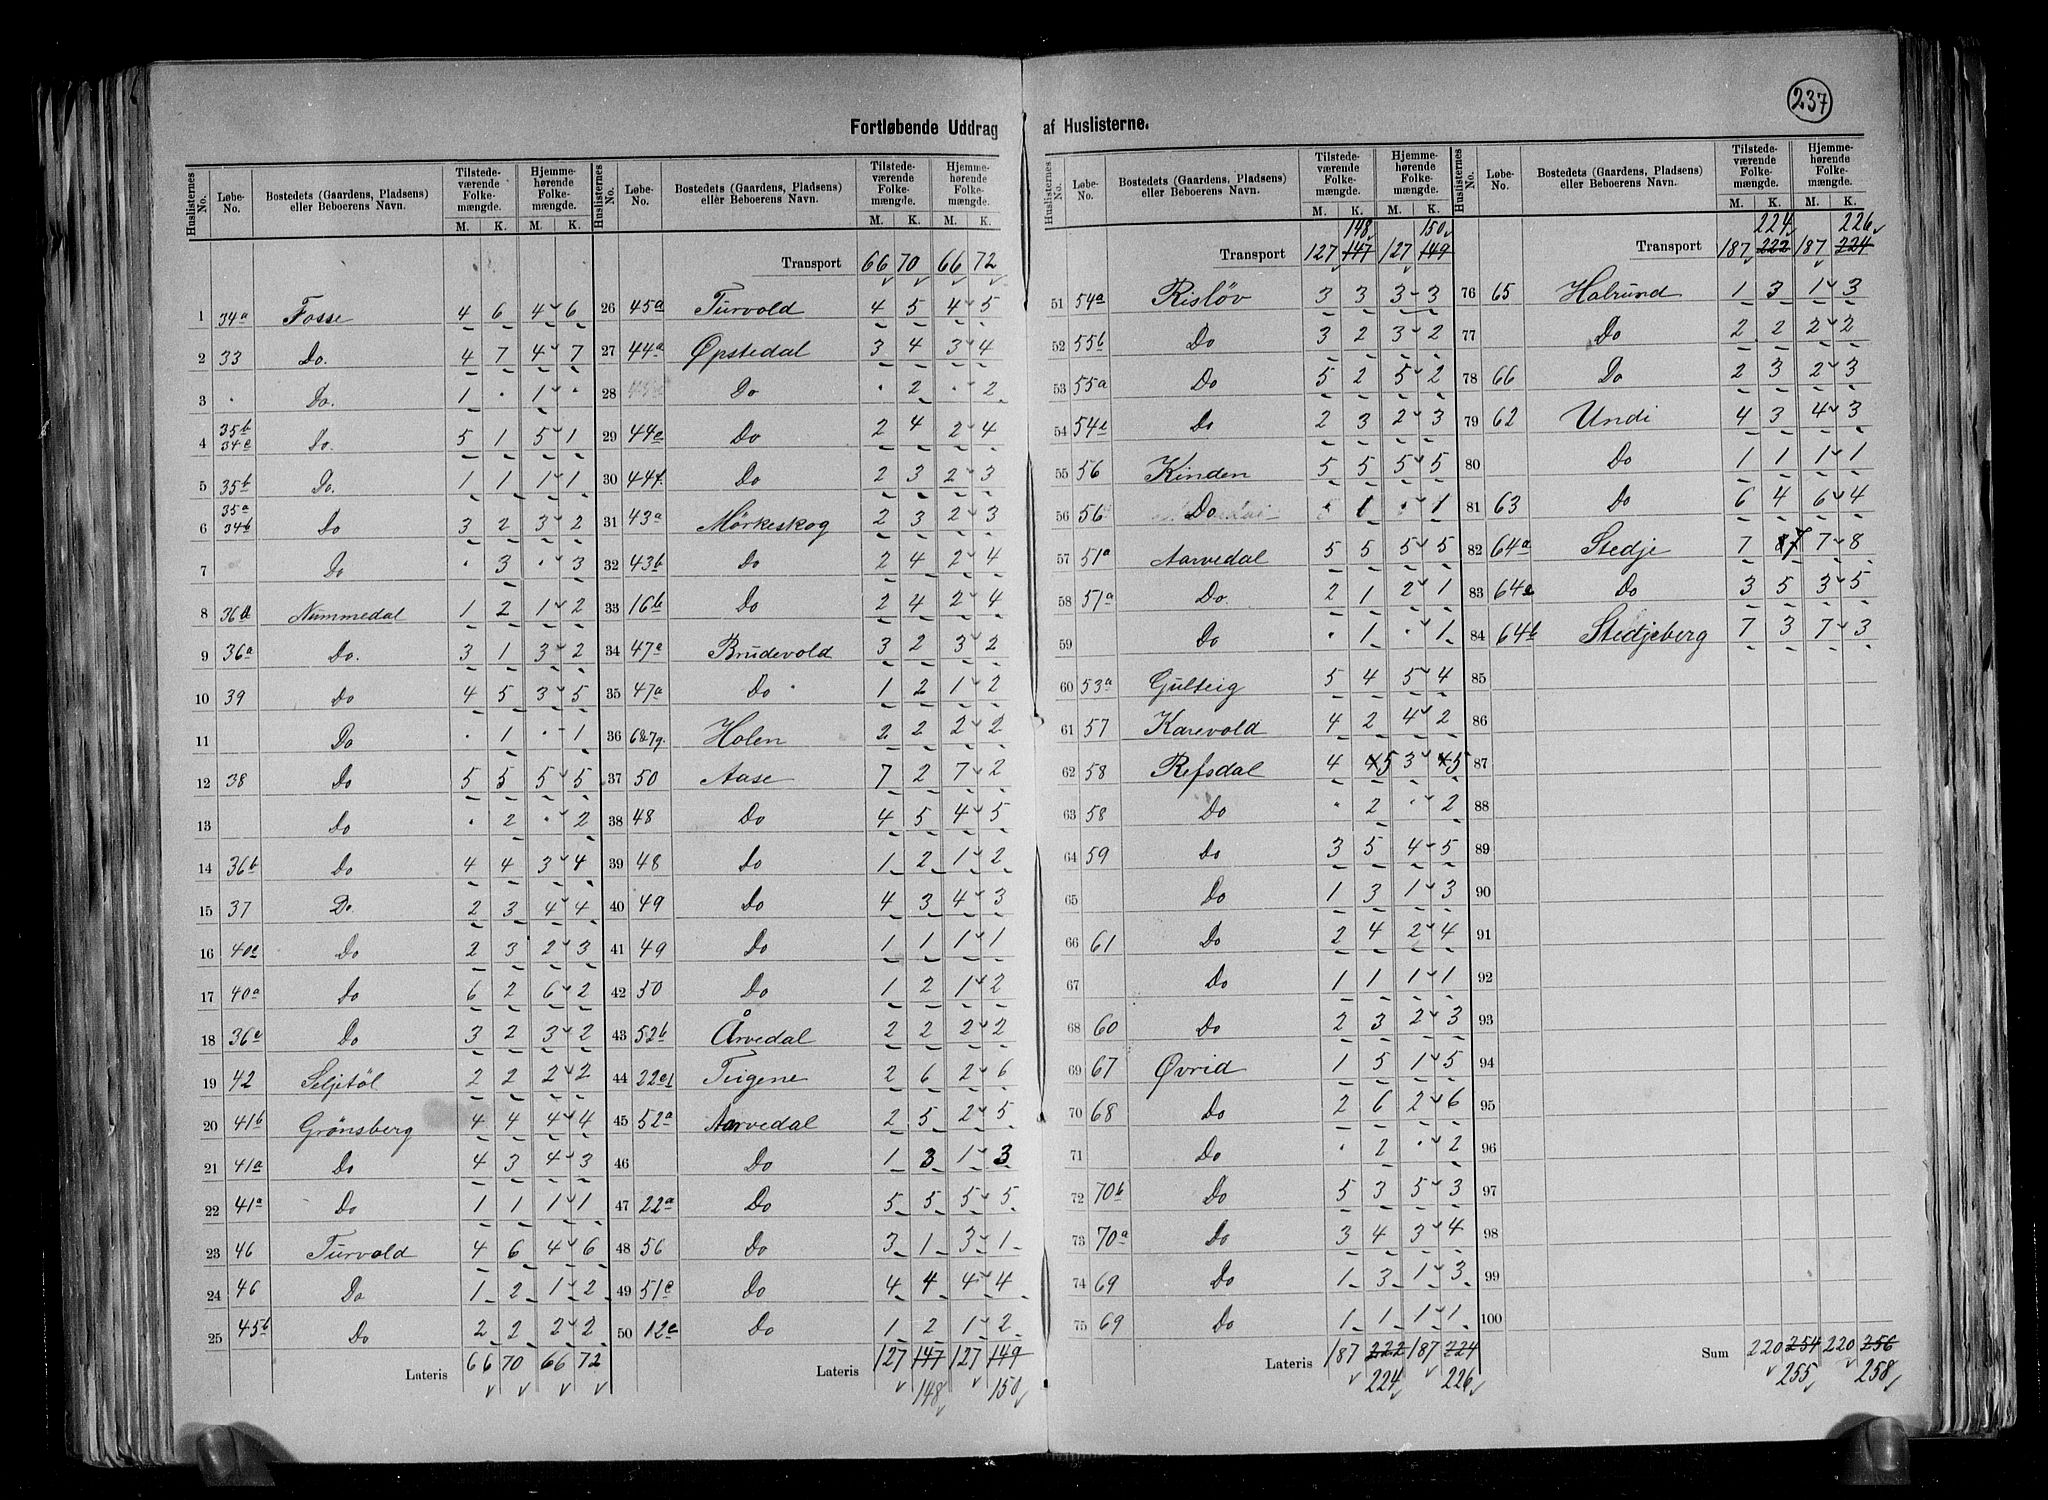 237
Fortløbende Uddrag af Huslisterne.
Huslisternes No. Løbe-No. Bostedets (Gaardens, Pladsens) eller Beboerens Navn. Tilstedeværende Folkemængde. Hjemmehørende Folkemængde.
M. K. M. K.
1 34a Fosse 4 6 4 6
2 33 Do. 4 7 4 7
3 . Do. 1 . 1 .
4 35b 34c Do. 5 1 5 1
5 35b Do. 1 1 1 1
6 35a 34b Do 3 2 3 2
7 Do . 3 . 3
8 36d Nummedal 1 2 1 2
9 36a Do. 3 1 3 2
10 39 Do 4 5 3 5
11 Do . 1 . 1
12 38 Do 5 5 5 5
13 Do . 2 . 2
14 36b Do 4 4 3 4
15 37 Do. 2 3 4 4
16 40c Do 2 3 2 3
17 40a Do 6 2 6 2
18 36c Do 3 2 3 2
19 42 Seljetöl 2 2 2 2
20 41b Grönsberg 4 4 4 4
21 41a Do 4 3 4 3
22 41a Do 1 1 1 1
23 46 Turvold 4 6 4 6
24 46 Do 1 2 1 2
25 45b Do 2 2 2 2
Lateris 66 70 66 72
Huslisternes No. Løbe-No. Bostedets (Gaardens, Pladsens) eller Beboerens Navn. Tilstedeværende Folkemængde. Hjemmehørende Folkemængde.
M. K. M. K.
Transport 66 70 66 72
26 45a Turvold 4 5 4 5
27 44a Øpstedal 3 4 3 4
28 Do . 2 . 2
29 44c Do 2 4 2 4
30 44f Do 2 3 2 3
31 43a Mörkeskog 2 3 2 3
32 43b Do 2 4 2 4
33 16b Do 2 4 2 4
34 47a Brudevold 3 2 3 2
35 47a Do 1 2 1 2
36 Holen 2 2 2 2
37 50 Aase 7 2 7 2
38 48 Do 4 5 4 5
39 48 Do 1 2 1 2
40 49 Do 4 3 4 3
41 49 Do 1 1 1 1
42 50 Do 1 2 1 2
43 52b Årvedal 2 2 2 2
44 Tugene 2 6 2 6
45 52a Aarvedal 2 5 2 5
46 Do 1 3 1 3
47 22a Do 5 5 5 5
48 56 Do 3 1 3 1
49 51c Do 4 4 4 4
50 12a Do 1 2 1 2
Lateris 127 147 127 149
148 150
Huslisternes No. Løbe-No. Bostedets (Gaardens, Pladsens) eller Beboerens Navn. Tilstedeværende Folkemængde. Hjemmehørende Folkemængde.
M. K. M. K.
148 150
Transport 127 147 127 149
51 54a Risløv 3 3 3 3
52 55b Do 3 2 3 2
53 55a Do 5 2 5 2
54 54b Do 2 3 2 3
55 56 Kinden 5 5 5 5
56 56 Do . 1 . 1
57 51a Aarvedal 5 5 5 5
58 51a Do. 2 1 2 1
59 Do . 1 . 1
60 53a Gulteig 5 4 5 4
61 57 Karevold 4 2 4 2
62 58 Refsdal 4 4 5 3 4 5
63 58 Do . 2 . 2
64 59 Do 3 5 4 5
65 Do 1 3 1 3
66 61 Do 2 4 2 4
67 Do 1 1 1 1
68 60 Do 2 3 2 3
69 67 Øvrid 1 5 1 5
70 68 Do 2 6 2 6
71 Do . 2 . 2
72 70b Do 5 3 5 3
73 70a Do 3 4 3 4
74 69 Do 1 3 1 3
75 69 Do 1 1 1 1
Lateris 187 222 187 224
224 226
Huslisternes No. Løbe-No. Bostedets (Gaardens, Pladsens) eller Beboerens Navn. Tilstedeværende Folkemængde. Hjemmehørende Folkemængde.
M. K. M. K.
224 226
Transport 187 222 187 224
76 65 Halrund 1 3 1 3
77 Do 2 2 2 2
78 66 Do 2 3 2 3
79 62 Undi 4 3 4 3
80 Do 1 1 1 1
81 63 Do 6 4 6 4
82 64a Stedje 7 8 7 7 8
83 64c Do 3 5 3 5
84 64b Stedjeberg 7 3 7 3
85
86
87
88
89
90
91
92
93
94
95
96
97
98
99
100
Sum 220 254 220 256
255 258